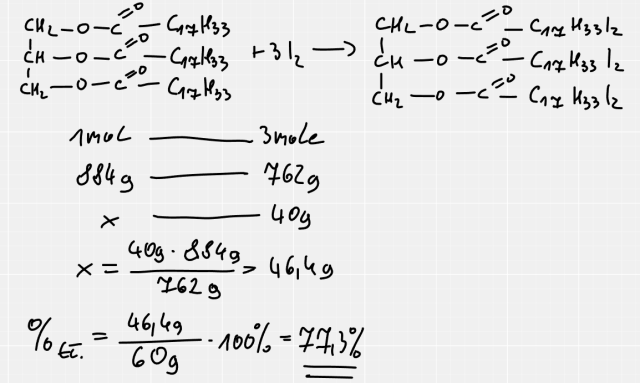 CH₂ — O — C =O — C₁₇H₃₃ CH₂ — O — C =O — C₁₇H₃₃I₂
CH — O — C =O — C₁₇H₃₃ + 3I₂ ⟶ CH — O — C =O — C₁₇H₃₃I₂
CH₂ — O — C =O — C₁₇H₃₃ CH₂ — O — C =O — C₁₇H₃₃I₂
1mol — 3mole
884g — 762g
x — 40g
x = 40g · 884g / 762g = 46,4g
%tł. = 46,4g / 60g · 100% = 77,3%